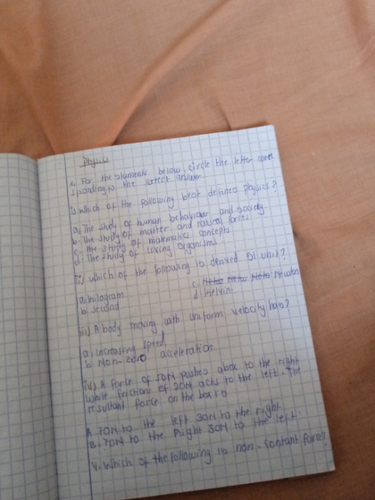 Physics
For the statements below, circle the letter corre
sponding to the correct answer
i) Which of the following best defines physics?
a. The study of human behaviour and society
b. The study of matter and natural forces
c. The study of mathematics concepts
d. The study of living organisms
ii) Which of the following is derived SI unit?
a. kilogram c. Newton
b. second d. kelvin
iii) A body moving with uniform velocity has?
a. increasing speed
b. Non-zero acceleration
iv) A force of 50N pushes a box to the right
while friction of 20N acts to the left. The
resultant force on the box is
A. 70N to the left 30N to the right
B. 70N to the right 30N to the left.
v. Which of the following is non-contant force?